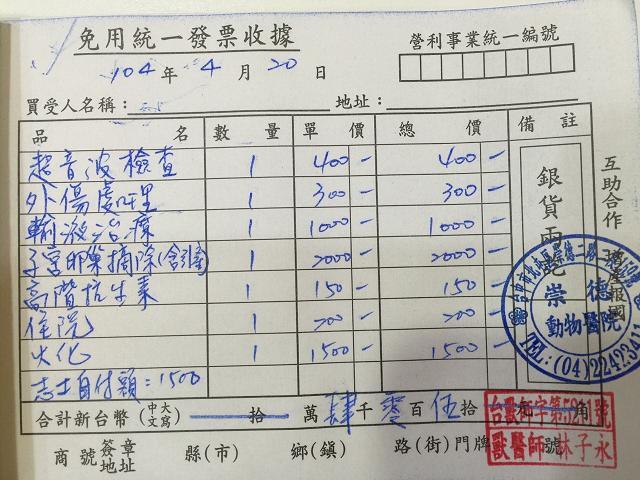 免用統一發票收據
營利事業統一編號
104年 4月 20日
買受人名稱： 地址：
品名 數量 單價 總價 備註
超音波檢查 1 400- 400-
外傷處理 1 300- 300-
輸液治療 1 1000- 1000-
子宮卵巢摘除(含引產) 1 2000- 2000-
高階抗生素 1 150- 150-
住院 1 200- 200-
火化 1 1500- 1500-
志士自付額：1500
銀貨兩訖
互助合作
報國
崇德
動物醫院
TEL:(04)22434
合計新台幣(中文大寫) 拾 萬 肆 千 零 百 伍 拾 角
台獸 字第 號
獸醫師 林子永
商號簽章地址 縣(市) 鄉(鎮) 路(街)門牌 號